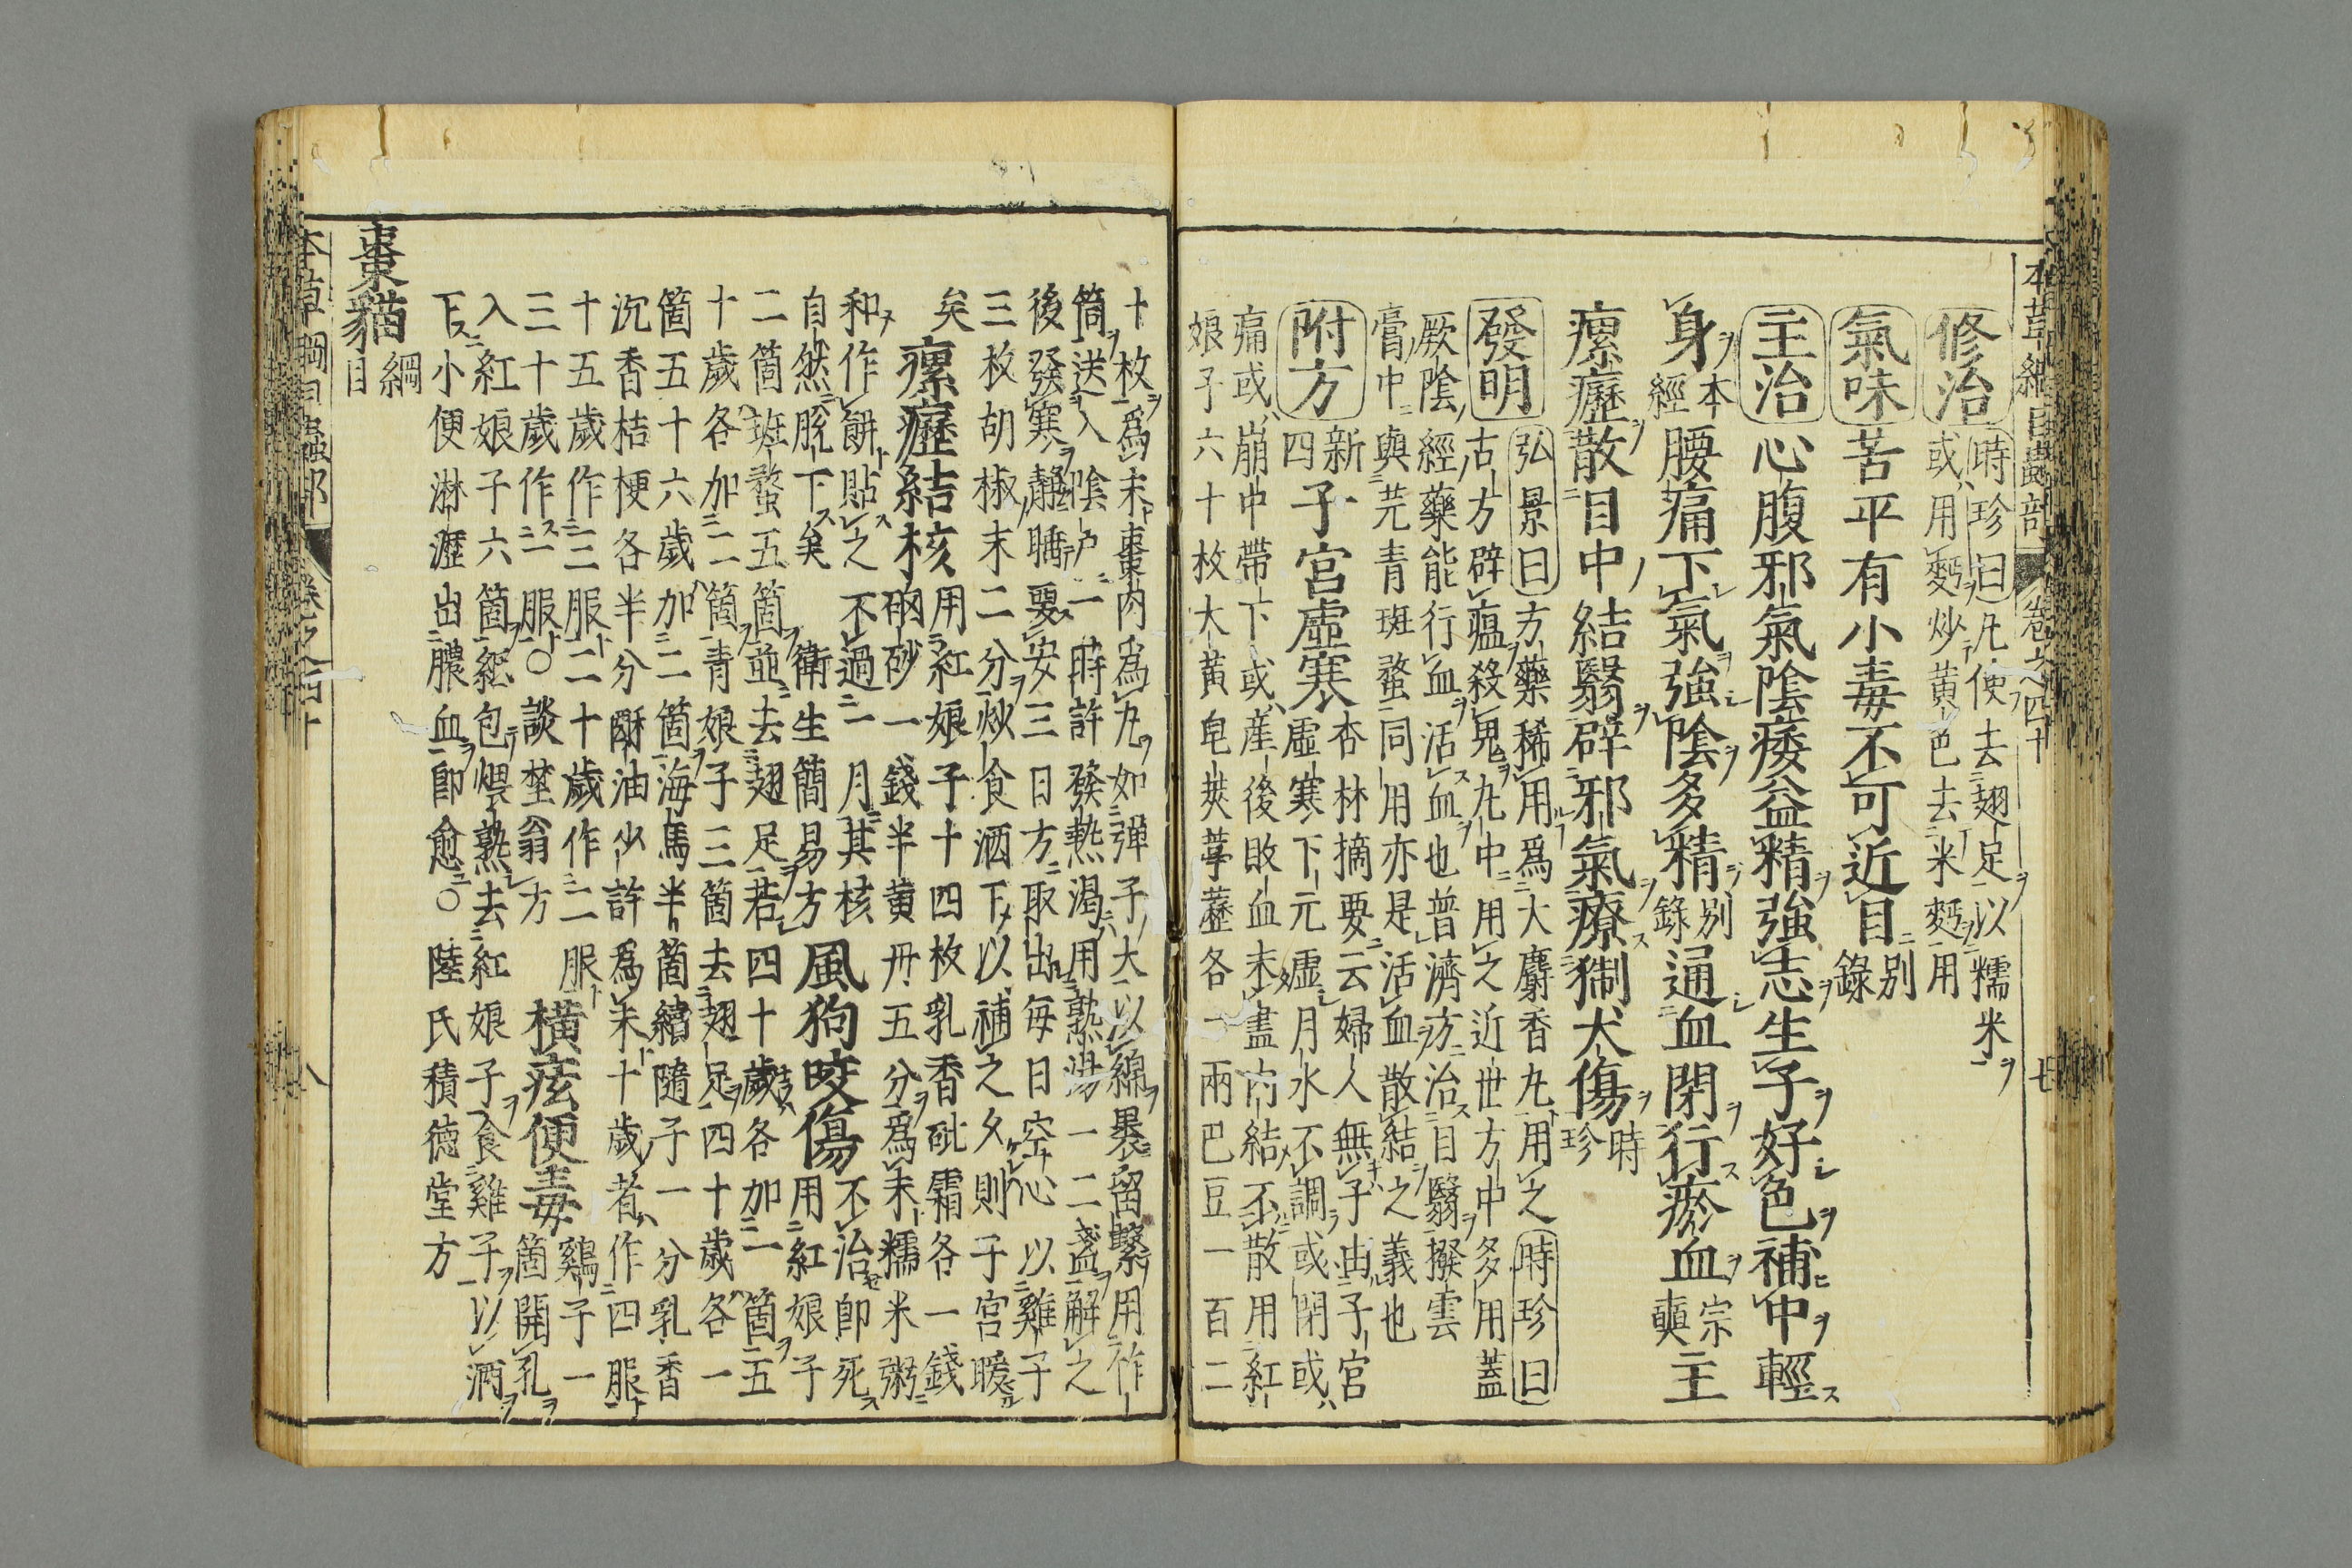 本草綱目蟲部 卷之四十 七
修治 時珍曰凡使去翅足以糯米
或用麪炒黃色去米麪用
氣味 苦平有小毒不可近目 別錄
主治 心腹邪氣陰痿益精強志生子好色補中輕
身 本經 腰痛下氣強陰多精 別錄 通血閉行瘀血 宗奭 主
瘰癧散目中結翳辟邪氣療猘犬傷 時珍
發明 弘景曰方藥稀用爲大麝香丸用之 時珍曰
古方辟瘟殺鬼丸中用之近世方中多用蓋
厥陰經藥能行血活血也普濟方治目翳撥雲
膏中與芫青斑蝥同用亦是活血散結之義也
附方 新四 子宮虛寒 杏林摘要云婦人無子由子宮
虛寒下元虛月水不調或閉或
痛或崩中帶下或產後敗血未盡內結不散用紅
娘子六十枚大黃皂莢葶藶各一兩巴豆一百二
十枚爲末棗肉爲丸如彈子大以綿裹留繫用作
筒送入陰戶一時許發熱渴用熟湯一二盞解之
後發寒靜睡要安三日方取出每日空心以雞子
三枚胡椒末二分炒食酒下以補之久則子宮暖
矣 瘰癧結核 用紅娘子十四枚乳香砒霜各一錢
硇砂一錢半黃丹五分爲末糯米粥
和作餅貼之不過一月其核
自然脫下矣 衛生簡易方 風狗咬傷 不治卽死
用紅娘子
二箇斑蝥五箇並去翅足若四十歲各加一箇五
十歲各加二箇青娘子三箇去翅足四十歲各一
箇五十六歲加二箇海馬半箇續隨子一分乳香
沉香桔梗各半分酥油少許爲末十歲者作四服
十五歲作三服二十歲作二服
三十歲作一服○談埜翁方 橫痃便毒 鷄子一
箇開孔
入紅娘子六箇紙包煨熟去紅娘子食雞子以酒
下小便淋瀝出膿血卽愈○陸氏積德堂方
棗貓 綱目
本草綱目蟲部 卷之四十 八